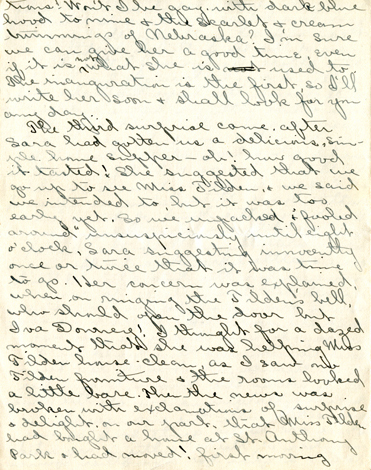 tions! Won't I be gay with dark blue
hood to mine & the scarlet & cream
trimmings of Nebraska? I'm sure
we can give her a good time, even
if it is not what she is used to.
The inauguration is the first so I'll
write her soon & shall look for you
any day.
The third surprise came after
Sara had gotten us a delicious, sim-
ple home supper - oh! how good
it tasted! She suggested that we
go up to see Miss Tilden, & we said
we intended to but it was too
early yet. So we unpacked & "fooled
around" unsuspiciously until eight
o'clock, Sara suggesting
once or twice that it was time
to go. Her concern was explained,
when on ringing the Tilden's bell,
who should open the door but
Iva Downey! I thought for a dazed
moment that she was helping Miss
Tilden house-clean, as I saw no
Tilden furniture & the rooms looked
a little bare. Then the news was
broken with exclamations of surprise
& delight, on our part, that Miss Tilden
had bought a house at St. Anthony
Park & had moved! first moving